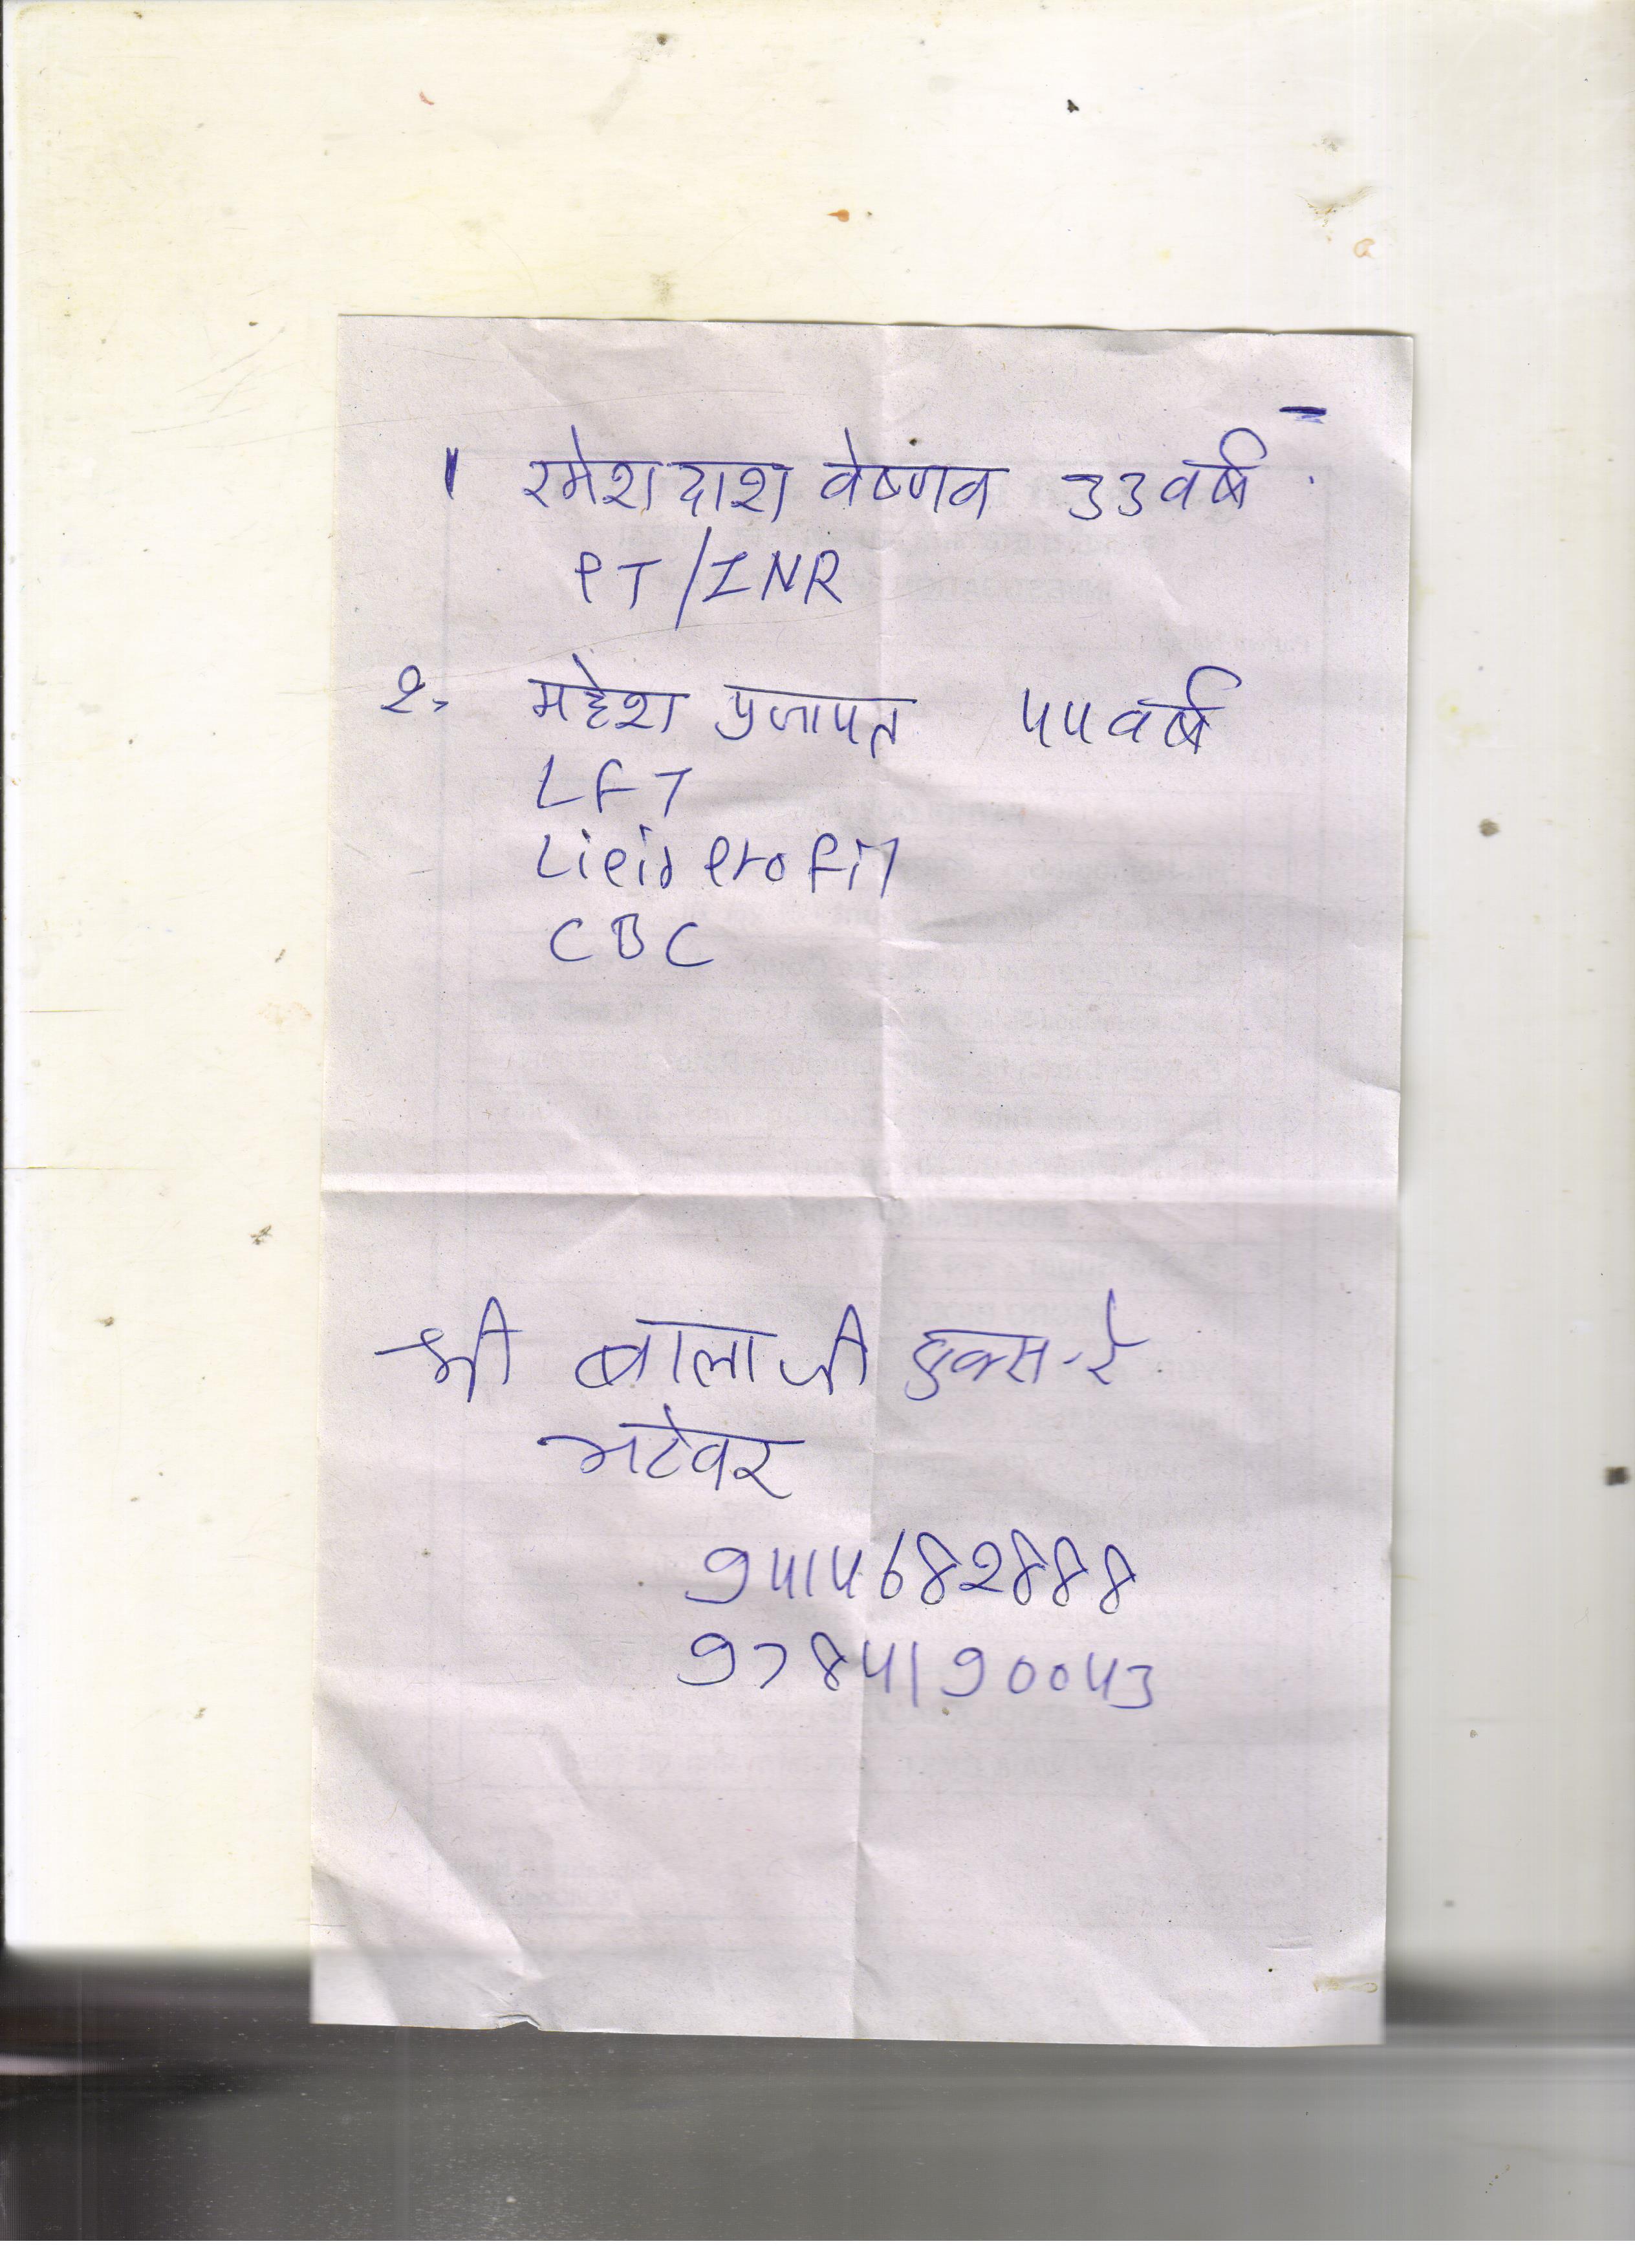 1 रमेश दाश वेष्णव 33 वर्ष
PT/INR
2, महेश प्रजापत 44 वर्ष
LFT
Lipid Profil
CBC
श्री बालाजी एक्स-रे
भटेवर
9414682888
9784190043